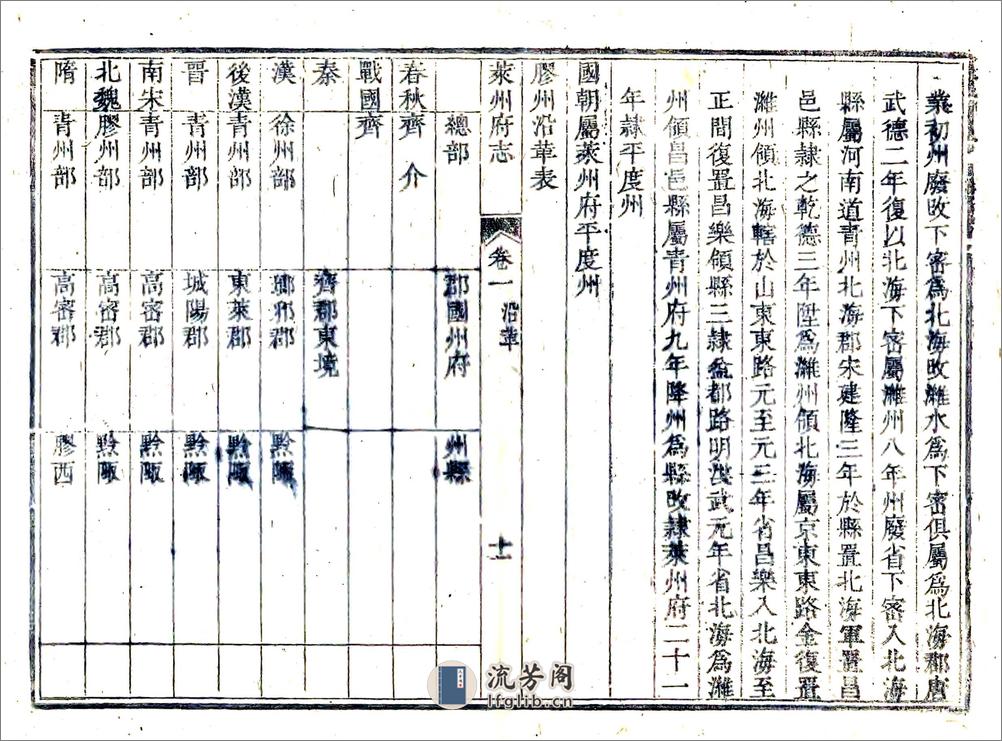 業初州廢改下密爲北海改濰水爲下密俱屬爲北海郡唐
武德二年復以北海下密屬濰州八年州廢省下密入北海
縣屬河南道青州北海郡宋建隆三年於縣置北海軍置昌
邑縣隸之乾德三年陞爲濰州領北海屬京東東路金復置
濰州領北海轄於山東東路元至元三年省昌樂入北海至
正間復置昌樂領縣三隸益都路明洪武元年省北海爲濰
州領昌邑縣屬青州府九年降州爲縣改隸萊州府二十一
年隸平度州
國朝屬萊州府平度州
膠州沿革表
萊州府志 卷一 沿革 十一
總部 郡國州府 州縣
春秋齊 介
戰國齊
秦 齊郡東境
漢 徐州部 瑯邪郡 黔陬
後漢青州部 東萊郡 黔陬
晋 青州部 城陽郡 黔陬
南宋青州部 高密郡 黔陬
北魏膠州部 高密郡 黔陬
隋 青州部 高密郡 膠西
流芳阁
lfglib.cn